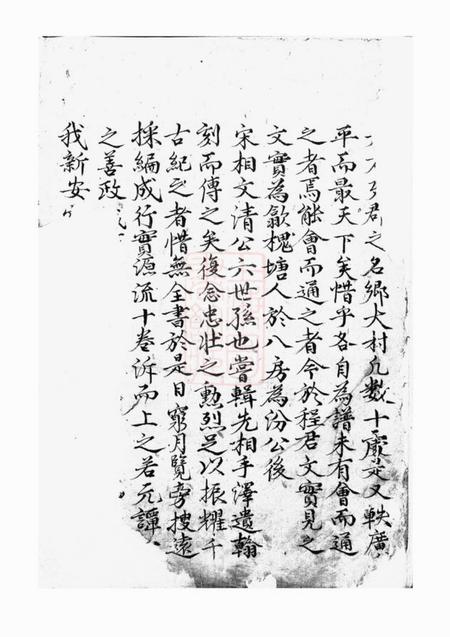 君之名鄉大村凡數十處是又軼廣
平而最天下矣惜乎各自為譜未有會而通
之者焉能會而通之者今於程君文實見之
文實為歙槐塘人於八房為份公後
宋相文清公六世孫也嘗輯先相手澤遺翰
刻而傳之矣復念忠壯之勲烈足以振耀千
古紀之者惜無全書於是日窮月覽旁搜遠
採編成行實源流十卷泝而上之若元譚
之善政
我新安